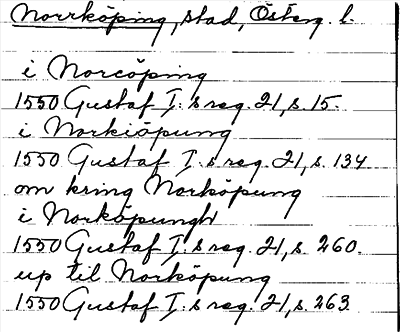 Norrköping, stad, Österg. l.
i Norcöping
1550 Gustaf I:s reg. 21, s. 15.
i Norkiöpung
1550 Gustaf I:s reg. 21, s. 134
om kring Norköpung
i Norköpungh
1550 Gustaf I:s reg. 21, s. 260.
up til Norköpung
1550 Gustaf I:s reg. 21, s. 263